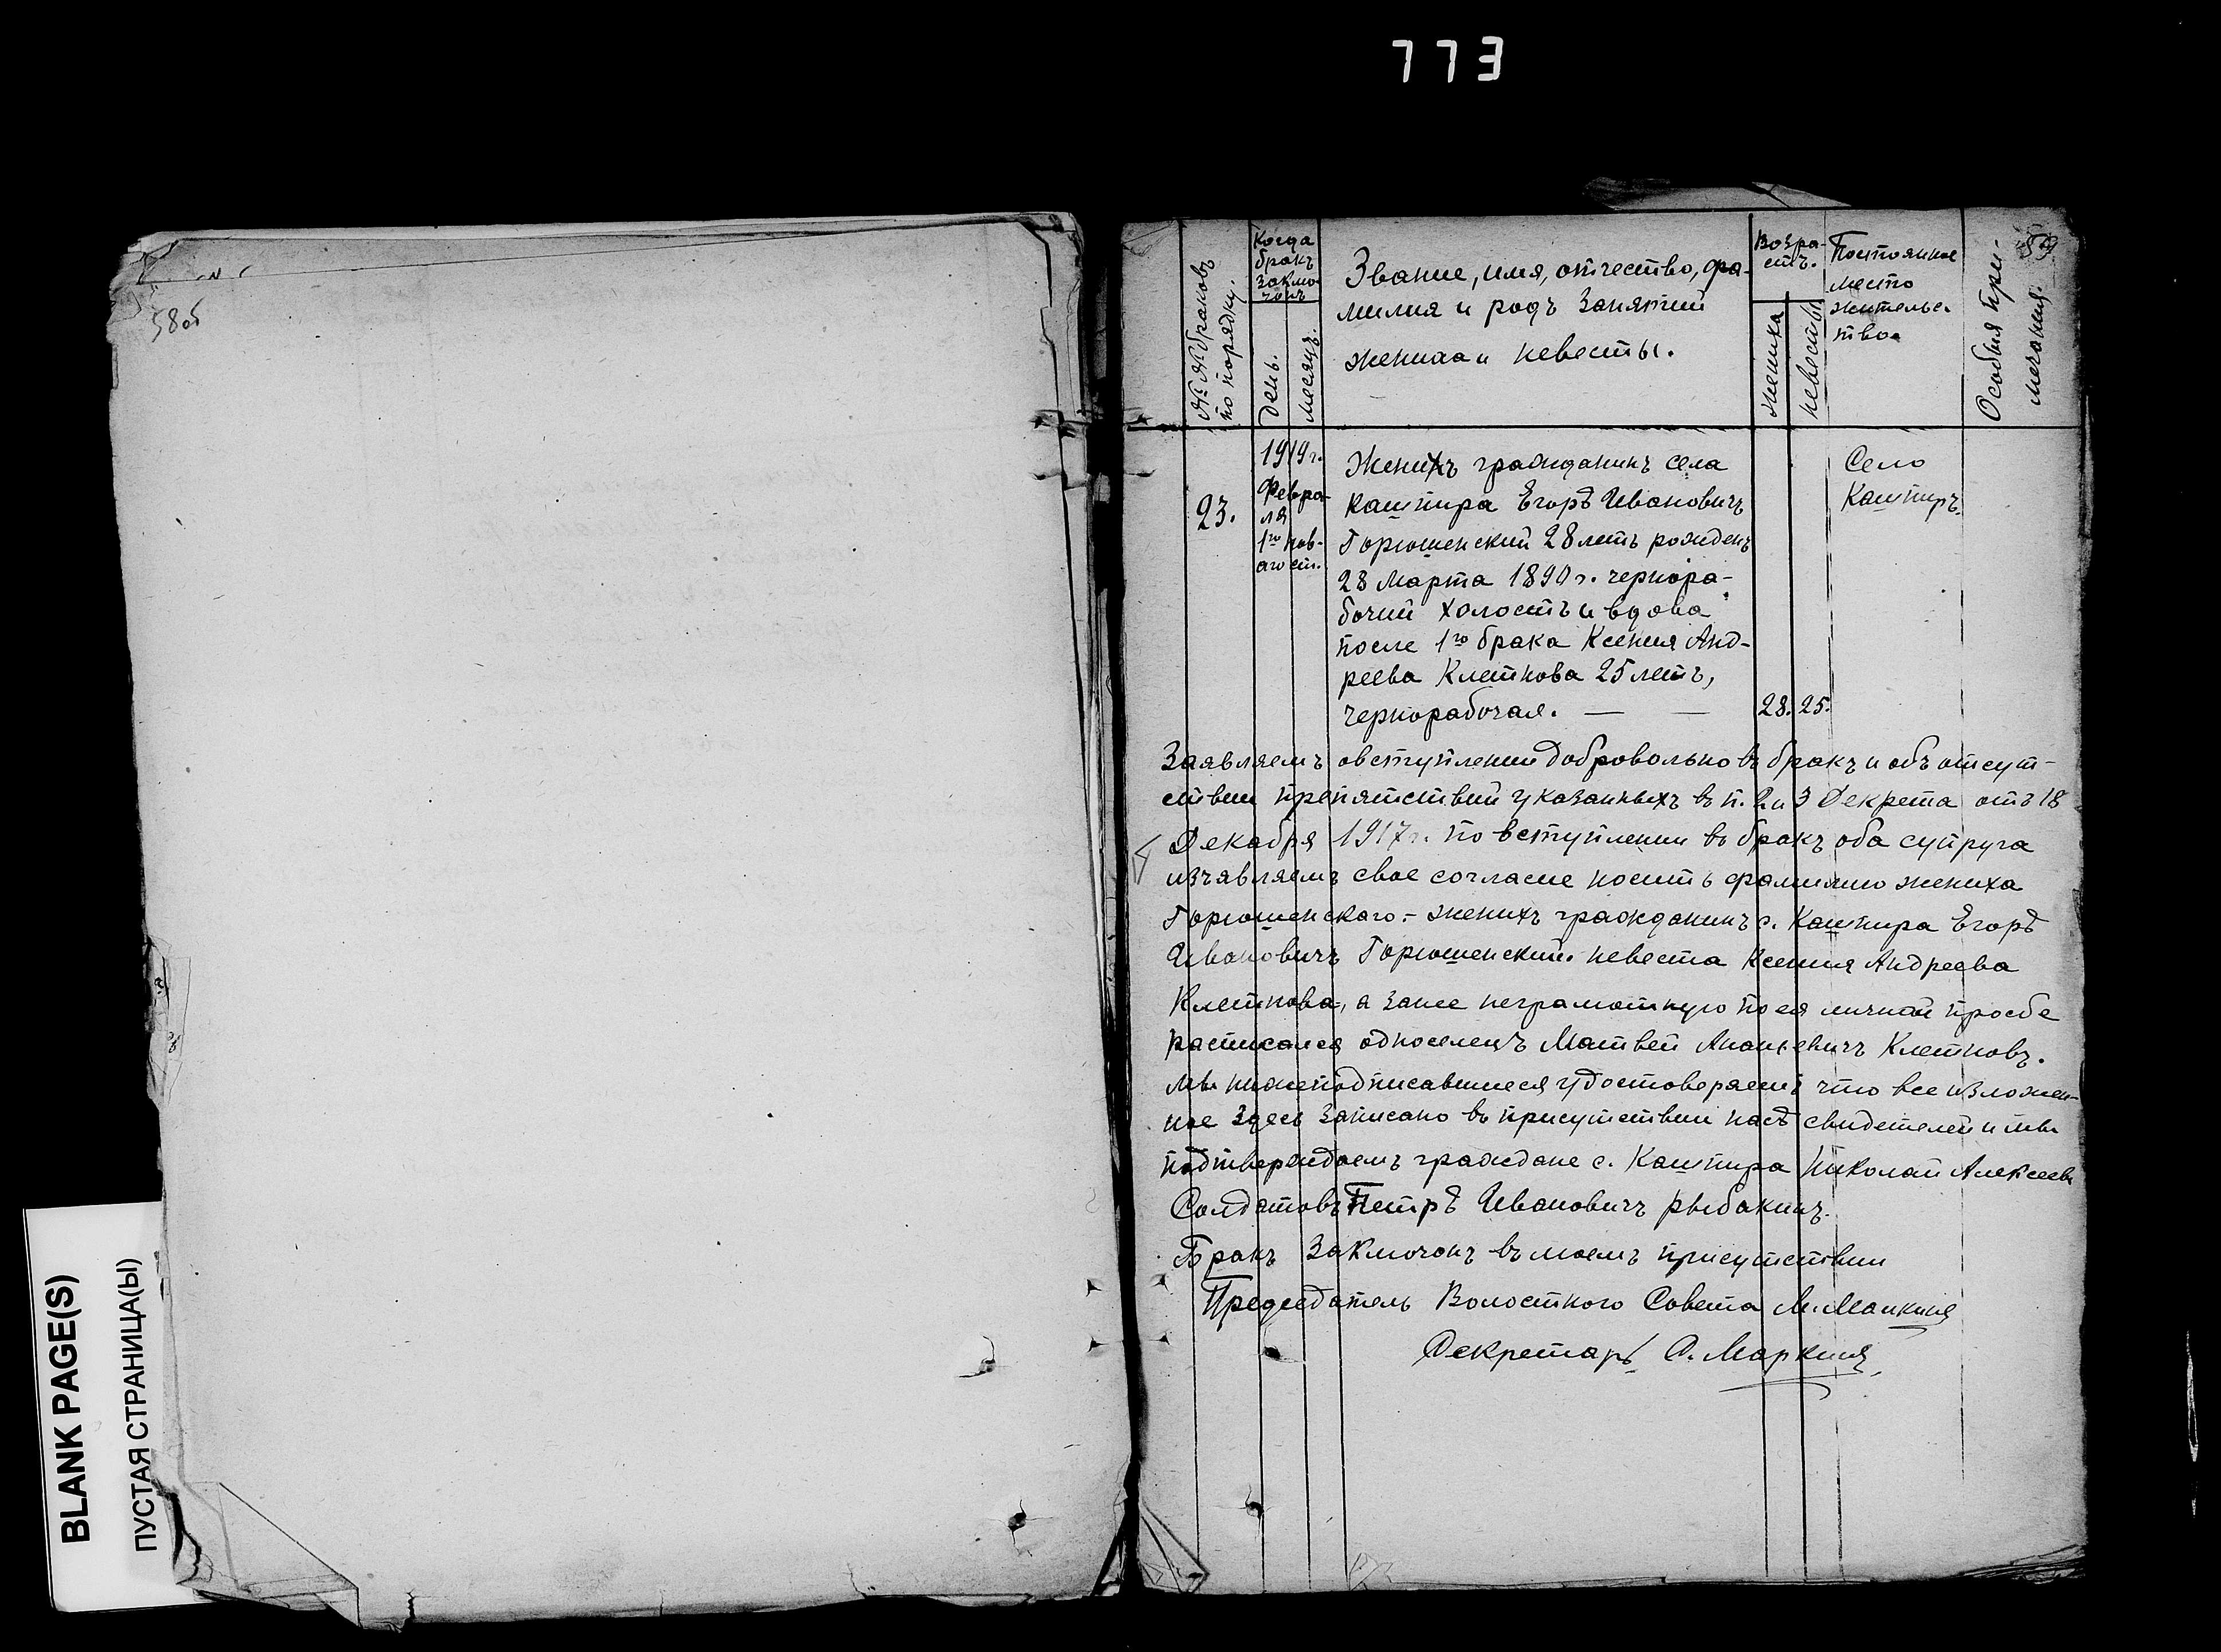 773
58об
BLANK PAGE(S)
ПУСТАЯ СТРАНИЦА(Ы)
59
№ № браковъ
по порядку.
Когда
бракъ
заклю-
чонъ
День.
Месяцъ.
Звание, имя, отчество, фа-
милия и родъ занятий
жениха и невесты.
Возра-
стъ.
жениха
невесты
Постоянное
место
жительс-
тво.
Особыя при-
мечания.
23.
1919 г.
Февра-
ля
1го нов-
аго ст.
Женихъ гражданинъ села
Каштира Егоръ Ивановичъ
Горюшенский 28 летъ рожденъ
28 марта 1890 г. чернора-
бочий холостъ и вдова
после 1го брака Ксения Анд-
реева Клетнова 25 летъ,
чернорабочая. — —
28. 25.
Село
Каштиръ.
Заявляемъ овступлении добровольно въ бракъ и объ отсут-
ствии препятствий указанныхъ въ п. 2 и 3 Декрета отъ 18
Декабря 1917 г. по вступлении въ бракъ оба супруга
изъявляемъ свое согласие носить фамилию жениха
Горюшенскаго.- женихъ гражданинъ с. Каштира Егоръ
Ивановичъ Горюшенский. невеста Ксения Андреева
Клетнова, а занее неграмотную по ея личной просбе
расписался односелецъ Матвей Ананьевичъ Клетновъ.
мы нижеподписавшиеся удостоверяемъ что все изложен-
ное здесь записано въ присутствии насъ свидетелей и мы
подтверждаемъ граждане с. Каштира Николай Алексеевъ
Солдатовъ Петръ Ивановичъ Рыбакинъ.
Бракъ заключонъ въ моемъ присутствии
Председатель Волостного Совета М. Манкинъ
Секретарь О. Маркинъ